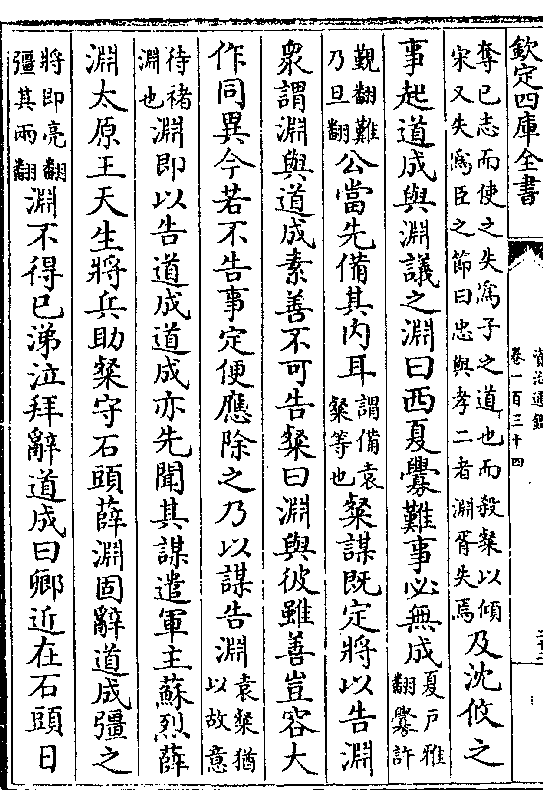 欽定四庫全書
資治通鑑
卷一百三十四
奪已志而使之失爲子之道也而殺粲以傾
宋又失爲臣之節曰忠與孝二者淵胥失焉
及沈攸之
事起道成與淵議之淵曰西夏釁難事必無成
夏戶雅
翻釁許
覲翻難
乃旦翻
公當先備其内耳
謂備袁
粲等也
粲謀既定將以告淵
衆謂淵與道成素善不可告粲曰淵與彼雖善豈容大
作同異今若不告事定便應除之乃以謀告淵
袁粲猶
以故意
待褚
淵也
淵即以告道成道成亦先聞其謀遣軍主蘇烈薛
淵太原王天生將兵助粲守石頭薛淵固辭道成彊之
將即亮翻
彊其兩翻
淵不得已涕泣拜辭道成曰卿近在石頭日